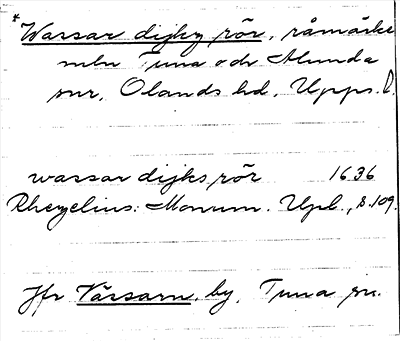 *Wassar dijks rör, råmärke
mln Tuna och Alunda
snr, Olands hd, Upps. l.
wassar dijks rör 1636
Rhezelius: Monum. Upl., s. 109.
Jfr Vässarn, by, Tuna sn.